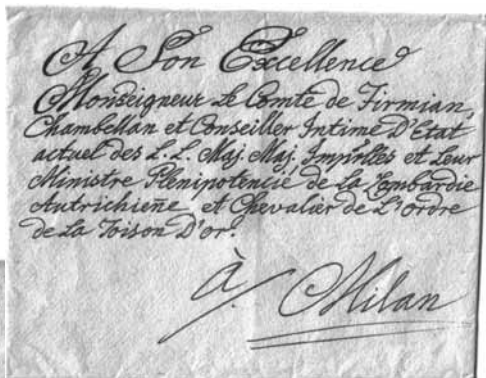 A Son Excellence
Monseigneur Le Comte de Firmian,
Chambellan et Conseiller Intime D'Etat
actuel des L. L. Maj. Maj. Impirlles et Leur
Ministre Plenipotencié de la Lombardie
Autrichiene et Chevalier de L'ordre
de La Toison D'or.
à Milan